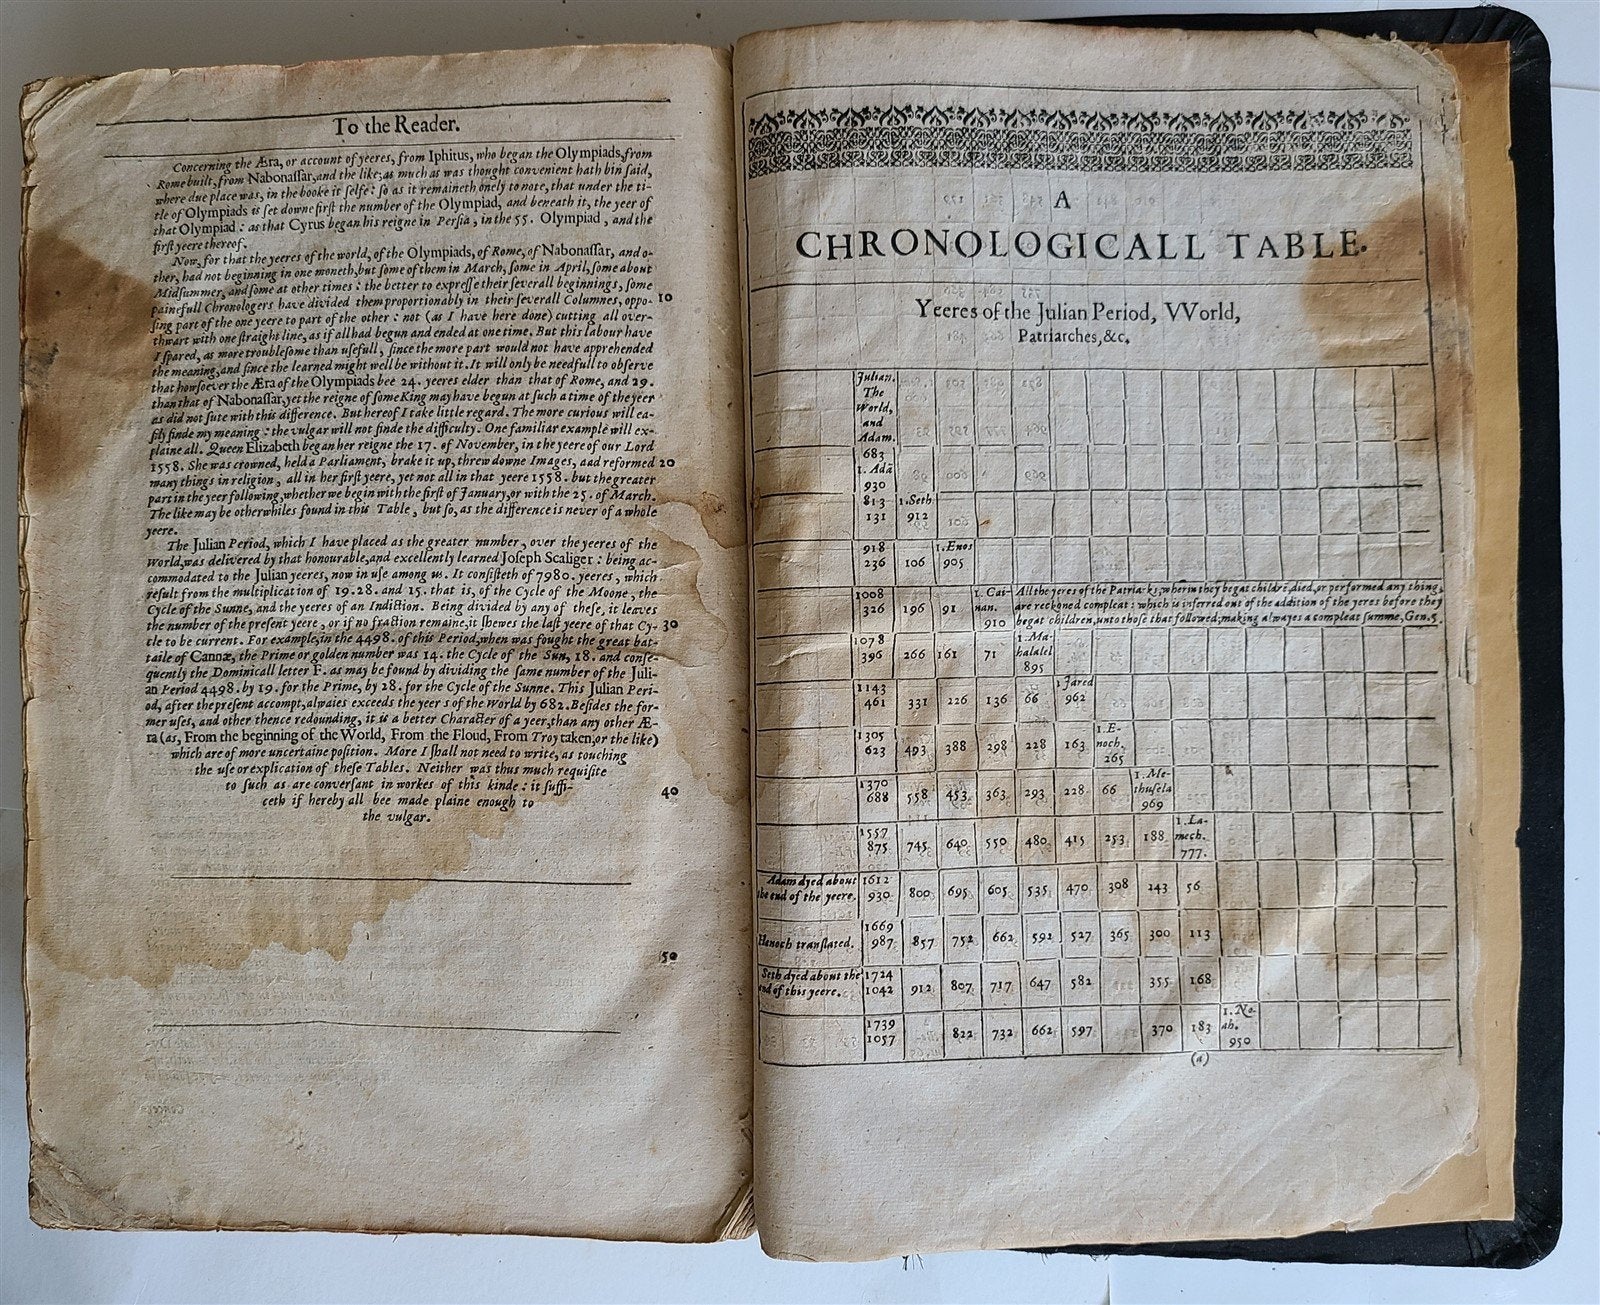 To the Reader.
Concerning the Æra, or account of yeeres, from Iphitus, who began the Olympiads, from
Rome built, from Nabonaſſar, and the like; as much as was thought convenient hath bin ſaid,
where due place was, in the booke it ſelfe: ſo as it remaineth onely to note, that under the ti-
tle of Olympiads is ſet downe firſt the number of the Olympiad, and beneath it, the yeer of
that Olympiad: as that Cyrus began his reigne in Perſia, in the 55. Olympiad, and the
firſt yeere thereof.
Now, for that the yeeres of the world, of the Olympiads, of Rome, of Nabonaſſar, and o-
ther, had not beginning in one moneth, but ſome of them in March, ſome in April, ſome about
Midſummer, and ſome at other times: the better to expreſſe their ſeverall beginnings, ſome
painefull Chronologers have divided them proportionably in their ſeverall Columnes, oppo- 10
ſing part of the one yeere to part of the other: not (as I have here done) cutting all over-
thwart with one ſtraight line, as if all had begun and ended at one time. But this labour have
I ſpared, as more troubleſome than uſefull, ſince the more part would not have apprehended
the meaning, and ſince the learned might well be without it. It will only be needfull to obſerve
that howſoever the Æra of the Olympiads bee 24. yeeres elder than that of Rome, and 29.
than that of Nabonaſſar, yet the reigne of ſome King may have begun at ſuch a time of the yeer
as did not ſute with this difference. But hereof I take little regard. The more curious will ea-
ſily finde my meaning: the vulgar will not finde the difficulty. One familiar example will ex-
plaine all. Queen Elizabeth began her reigne the 17. of November, in the yeere of our Lord
1558. She was crowned, held a Parliament, brake it up, threw downe Images, aad reformed 20
many things in religion, all in her firſt yeere, yet not all in that yeere 1558. but the greater
part in the yeer following, whether we begin with the firſt of January, or with the 25. of March.
The like may be otherwhiles found in this Table, but ſo, as the difference is never of a whole
yeere.
The Julian Period, which I have placed as the greater number, over the yeeres of the
World, was delivered by that honourable, and excellently learned Joſeph Scaliger: being ac-
commodated to the Julian yeeres, now in uſe among us. It conſiſteth of 7980. yeeres, which
reſult from the multiplication of 19. 28. and 15. that is, of the Cycle of the Moone, the
Cycle of the Sunne, and the yeeres of an Indiction. Being divided by any of theſe, it leaves
the number of the preſent yeere, or if no fraction remaine, it ſhewes the laſt yeere of that Cy- 30
cle to be current. For example, in the 4498. of this Period, when was fought the great bat-
taile of Cannæ, the Prime or golden number was 14. the Cycle of the Sun, 18. and conſe-
quently the Dominicall letter F. as may be found by dividing the ſame number of the Juli-
an Period 4498. by 19. for the Prime, by 28. for the Cycle of the Sunne. This Julian Peri-
od, after the preſent accompt, alwaies exceeds the yeers of the World by 682. Beſides the for-
mer uſes, and other thence redounding, it is a better Character of a yeer, than any other Æ-
ra (as, From the beginning of the World, From the Floud, From Troy taken, or the like)
which are of more uncertaine poſition. More I ſhall not need to write, as touching
the uſe or explication of theſe Tables. Neither was thus much requiſite
to ſuch as are converſant in workes of this kinde: it ſuffi- 40
ceth if hereby all bee made plaine enough to
the vulgar.
50
A
CHRONOLOGICALL TABLE.
Yeeres of the Julian Period, VVorld,
Patriarches, &c.
Julian.
The
World,
and
Adam.
683
1. Adã
930
813 1. Seth
131 912
918 1. Enos
236 106 905
1008 1. Cai- All the yeres of the Patriarks, wherin they begat childrẽ, died, or performed any thing,
326 196 91 nan. are reckoned compleat: which is inferred out of the addition of the yeres before they
910 begat children, unto thoſe that followed; making alwayes a compleat ſumme, Gen. 5.
1078 1. Ma-
396 266 161 71 halalel
895
1143 1 Jared
461 331 226 136 66 962
1305 1. E-
623 493 388 298 228 163 noch.
265
1370 1. Me-
688 558 453 363 293 228 66 thuſela
969
1557 1. La-
875 745 640 550 480 415 253 188 mech.
777.
Adam dyed about 1612
the end of the yeere. 930 800 695 605 535 470 308 243 56
1669
Hanoch tranſlated. 987 857 752 662 592 527 365 300 113
Seth dyed about the 1724
end of this yeere. 1042 912 807 717 647 582 355 168
1739 1. No-
1057 822 732 662 597 370 183 ah.
950
(a)